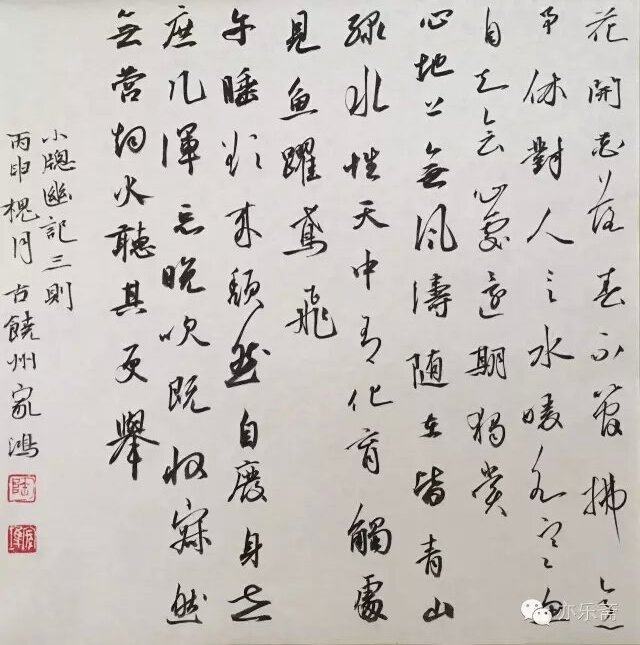 花開花落春不管拂意
事休對人言水暖水寒魚
自知會心處還期獨賞
心地上無風濤隨在皆青山
綠水性天中有化育觸處
見魚躍鳶飛
午睡欲來頹然自廢身世
庶幾渾忘晚炊既收寂然
無營烟火聽其更舉
小牕幽記三則
丙申槐月古饒州家鴻
亦乐斋